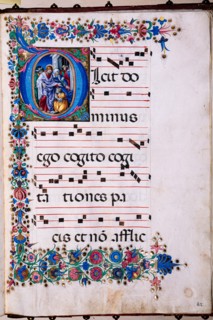 Dicit do
minus
ego cogito cogi
ta tiones pa
cis et nō afflic